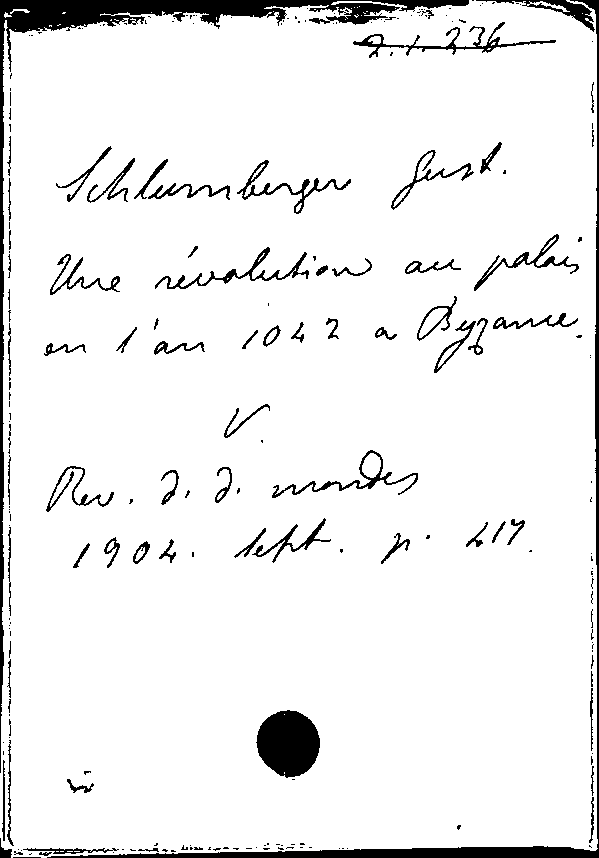 2.1.236
Schlumberger Gust.
Une révolution au palais
en l'an 1042 a Byzance.
V.
Rev. d. d. mondes
1904. sept. p. 417.